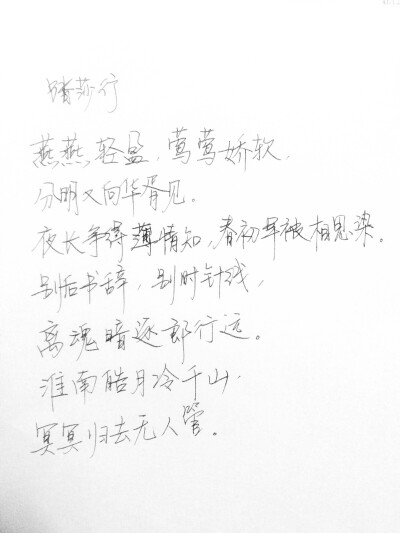 踏莎行
燕燕轻盈，莺莺娇软，
分明又向华胥见。
夜长争得薄情知，春初早被相思染。
别后书辞，别时针线，
离魂暗逐郎行远。
淮南皓月冷千山，
冥冥归去无人管。